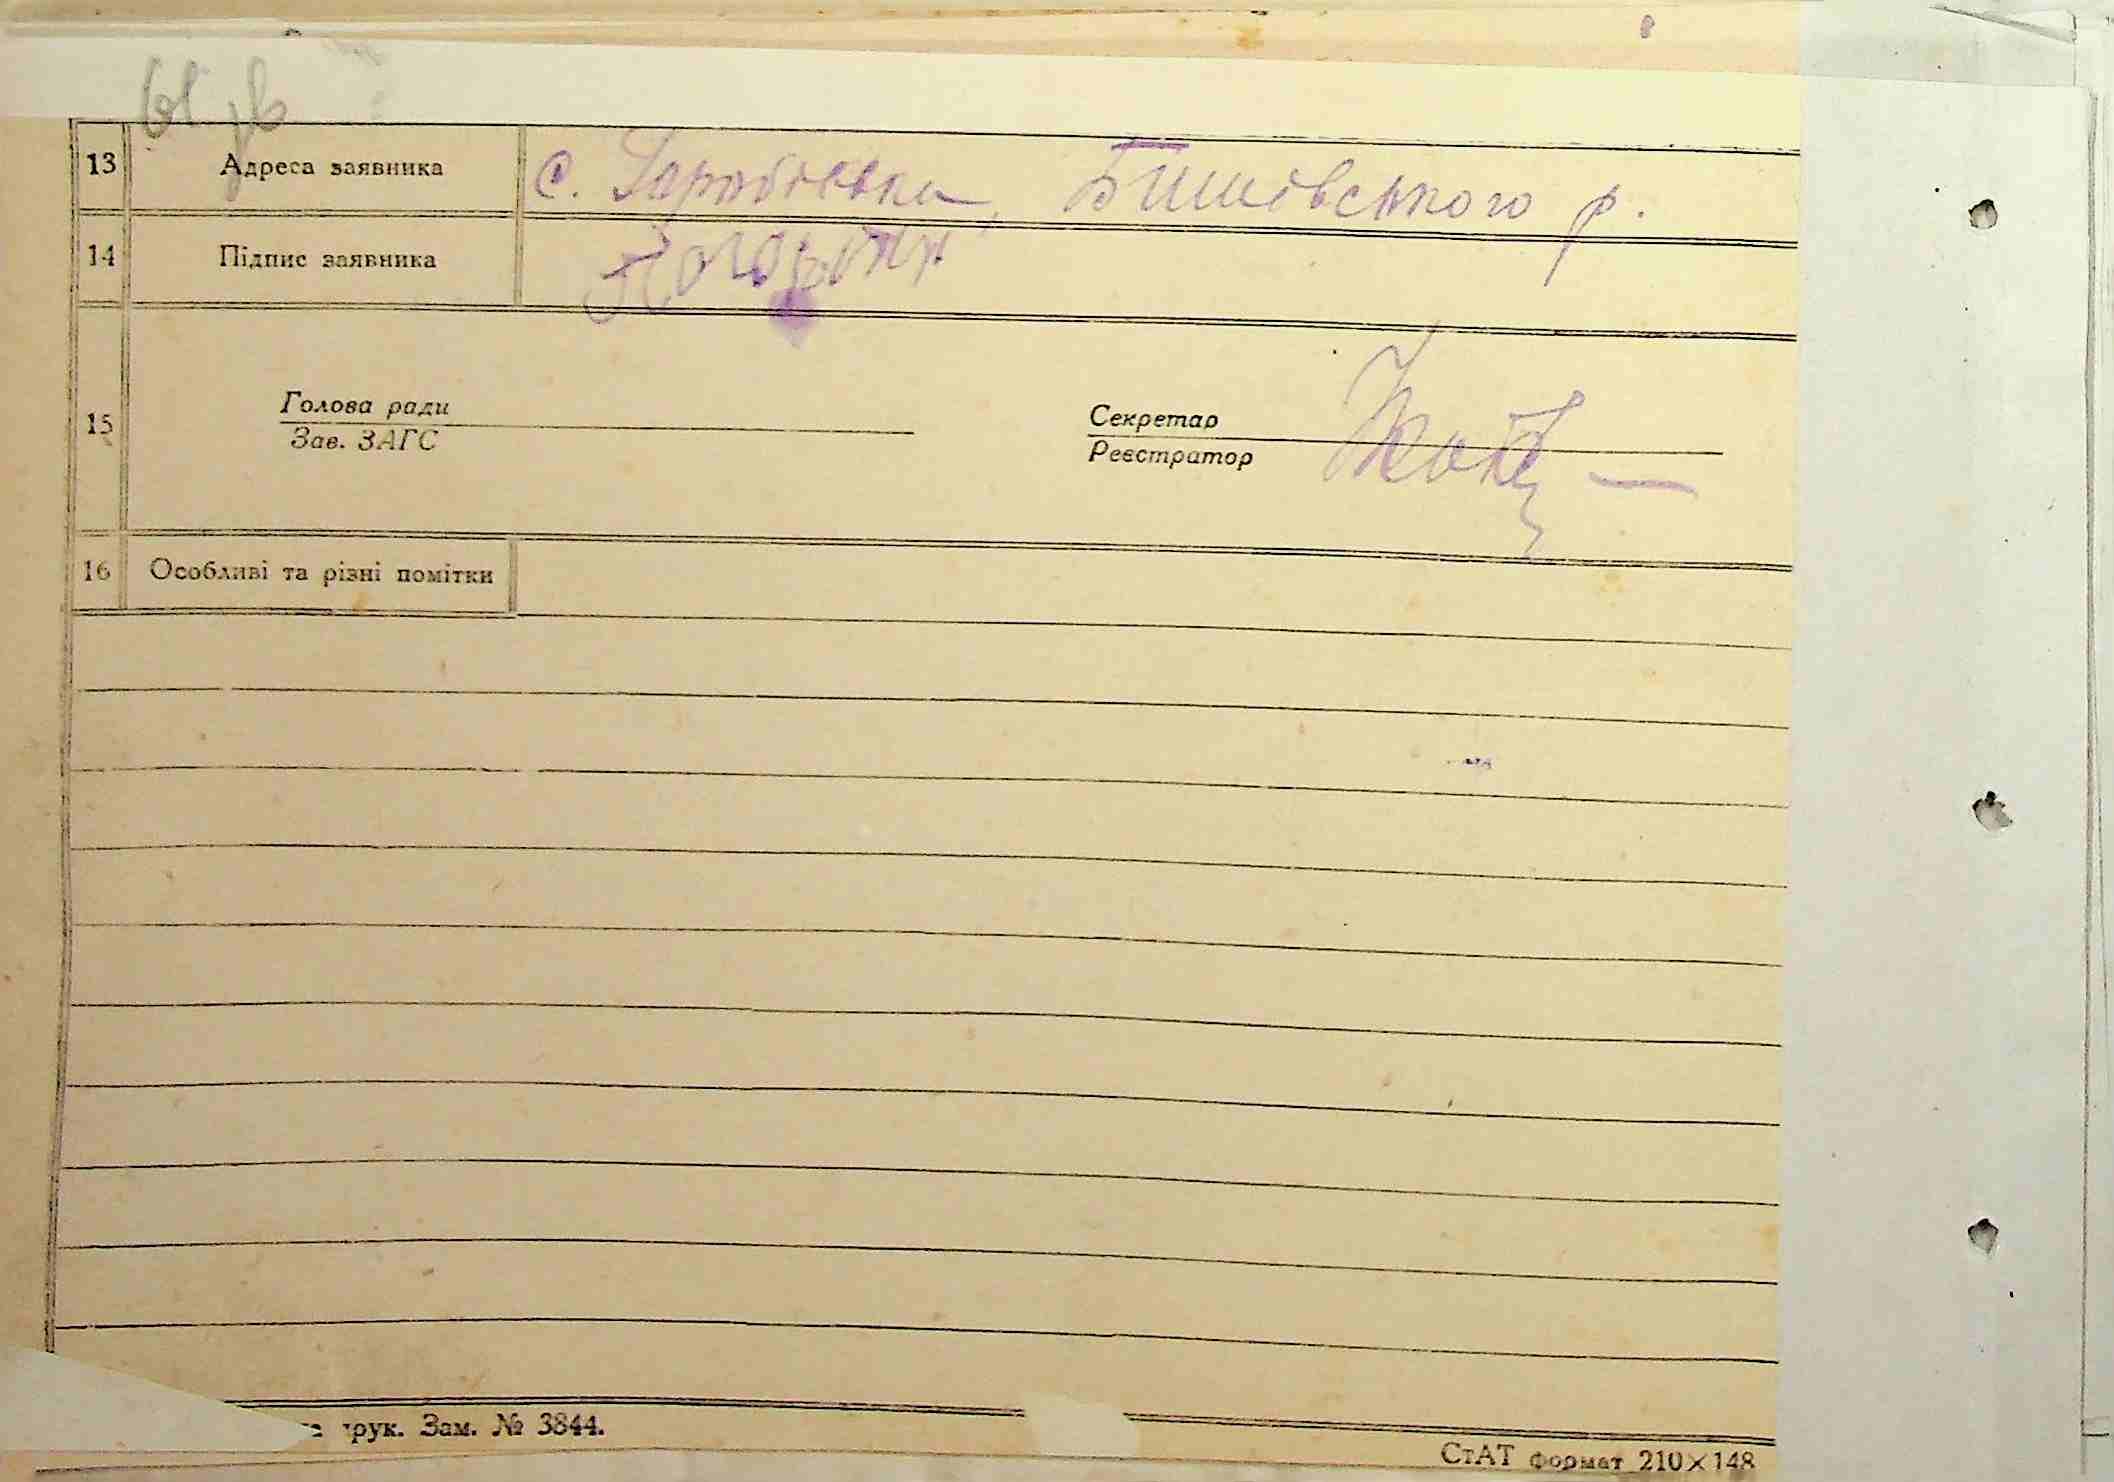 61 зв
13 Адреса заявника с. Горобіевка, Бишівського р.
14 Підпис заявника
15 Голова ради Секретар
Зав. ЗАГС Реєстратор
16 Особливі та різні помітки
друк. Зам. № 3844.
СтАТ формат 210×148